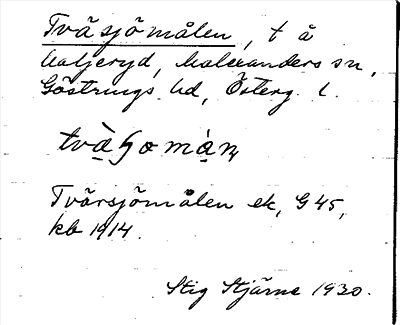 Tväsjömålen, t å
Maljeryd, Malexanders sn,
Göstrings hd, Österg. l.
Tvärsjömålen ek, G 45,
kb 1914.
Stig Stjärne 1930.